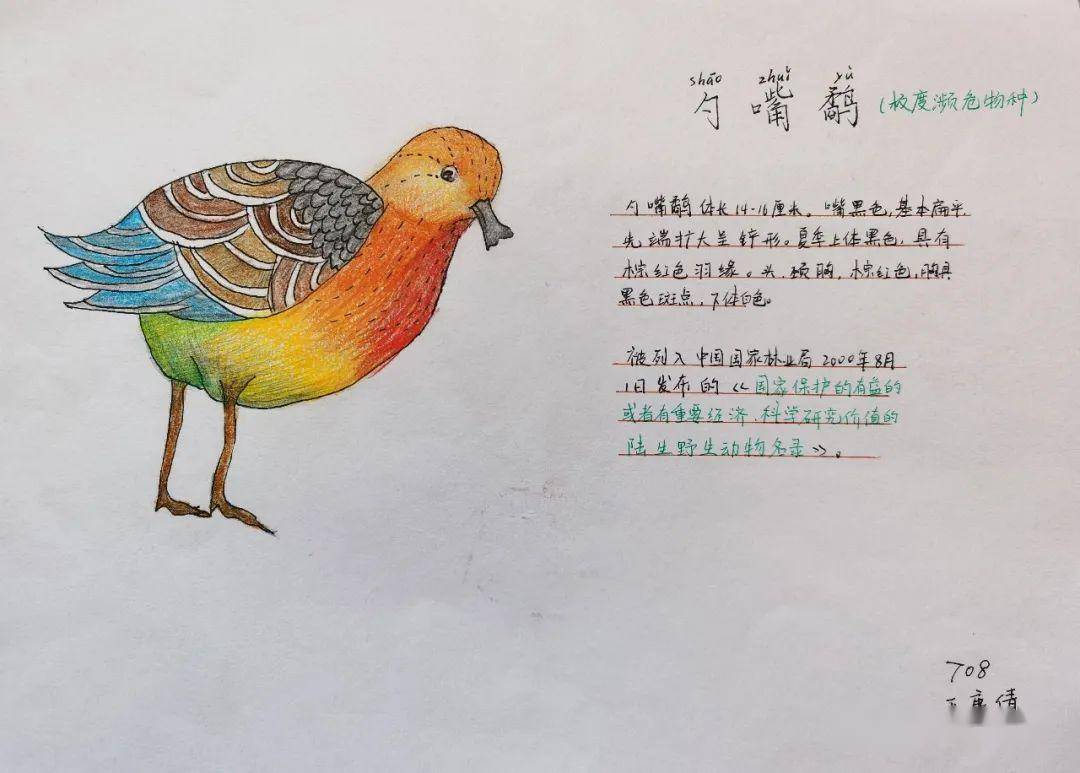 shāo zhuǐ yù
勺嘴鹬(极度濒危物种)
勺嘴鹬体长14-16厘米。嘴黑色,基本扁平
先端扩大呈铲形。夏季上体黑色,具有
棕红色羽缘。头、颈胸,棕红色,胸具
黑色斑点,下体白色。
被列入中国国家林业局2000年8月
1日发布的《国家保护的有益的
或者有重要经济、科学研究价值的
陆生野生动物名录》。
708
倩